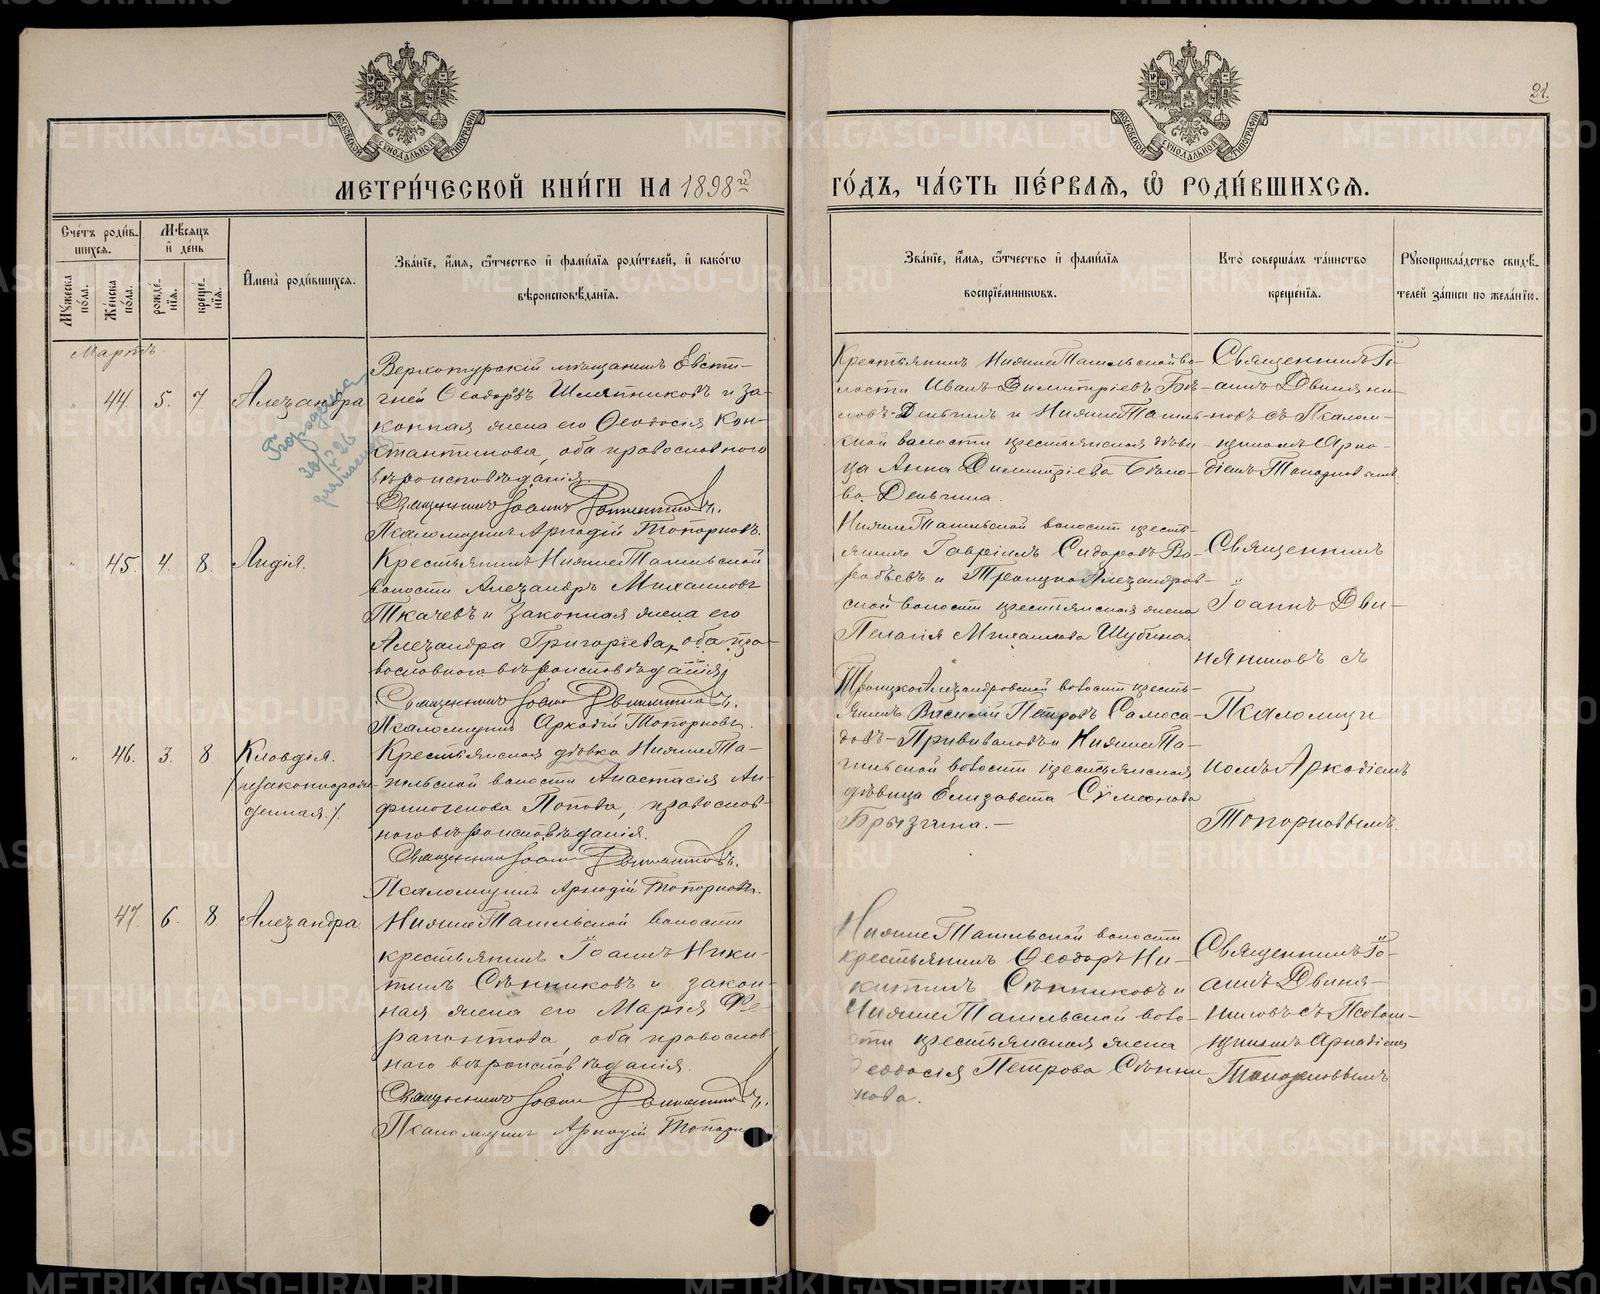 21.
МЕТРИ́ЧЕСКОЙ КНИ́ГИ НА 1898й
ГО́ДЪ, ЧА́СТЬ ПЕ́РВАѦ, Ѽ РОДИ́ВШИХСѦ.
Сче́тъ роди́в-
шихсѧ.
Мꙋ́жеска по́ла.
Же́нска по́ла.
Мѣ́сѧцъ и де́нь
рожде́нїѧ.
креще́нїѧ.
Имена̀ роди́вшихсѧ.
Зва́нїе, и́мѧ, ѻ҆́тчество и фами́лїѧ роди́телей, и како́гѡ
вѣроисповѣ́данїѧ.
Зва́нїе, и́мѧ, ѻ҆́тчество и фами́лїѧ
воспрїе́мниковъ.
Кто̀ соверша́лъ та́инство
креще́нїѧ.
Рꙋкоприкла́дство свидѣ́-
телей за́писи по жела́нїю.
Мартъ.
44. 5. 7.
Александра
Верхотурскій мѣщанинъ Евсти-
гней Ѳеодоровъ Шляпниковъ и за-
конная жена его Ѳеодосія Кон-
стантинова, оба православного
вѣроисповѣданія.
Священникъ Іоаннъ Двинянинов.
Псаломщикъ Аркадій Топорковъ.
Крестьянинъ НижнеТагильской во-
лости Иванъ Димитріевъ Бѣ-
ловъ-Деньгинъ и НижнеТагиль-
ской волости крестьянская дѣви-
ца Анна Димитріева Бѣло-
ва Деньгина.
Священникъ Іо-
аннъ Двиняни-
новъ съ Псалом-
щикомъ Арка-
діемъ Топорковымъ
45. 4. 8.
Лидія.
Крестьянинъ НижнеТагильской
волости Александръ Михаиловъ
Ткачевъ и законная жена его
Александра Григоріева, оба пра-
вославного вѣроисповѣданія
Священникъ Іоаннъ Двинянинов.
Псаломщикъ Аркадій Топорковъ.
НижнеТагильской волости кресть-
янинъ Гавріилъ Сидоровъ Во-
робьевъ и ТроицкоАлександров-
ской волости крестьянская жена
Пелагія Михаилова Шубина.
Священникъ
Іоаннъ Дви-
няниновъ съ
Псаломщи
комъ Аркадіемъ
Топорковымъ.
46. 3. 8
Клавдія.
/незаконнорож
денная./.
Крестьянская дѣвка НижнеТа-
гильской волости Анастасія Ан-
финогенова Попова, православ-
ного вѣроисповѣданія.
Священникъ Іоаннъ Двинянинов.
Псаломщикъ Аркадій Топорковъ.
ТроицкоАлександровской волости кресть-
янинъ Василій Петровъ Самоса-
довъ-Прививаловъ и НижнеТа-
гильской волости крестьянская
дѣвица Елизавета Сѵмеонова
Брызгина.-
47. 6. 8.
Александра.
НижнеТагильской волости
крестьянинъ Іоаннъ Ники-
тинъ Сѣнниковъ и закон-
ная жена его Марія Фе-
рапонтова, оба православ
ного вѣроисповѣданія.
Священникъ Іоаннъ Двинянинов.
Псаломщикъ Аркадій Топорк
НижнеТагильской волости
крестьянинъ Ѳеодоръ Ни-
китинъ Сѣнниковъ и
НижнеТагильской воло-
сти крестьянская жена
Ѳеодосія Петрова Сѣнни
кова.
Священникъ Іо-
аннъ Двиня-
ниновъ съ Псалом-
щикомъ Аркадіемъ
Топорковымъ
METRIKI.GASO-URAL.RU